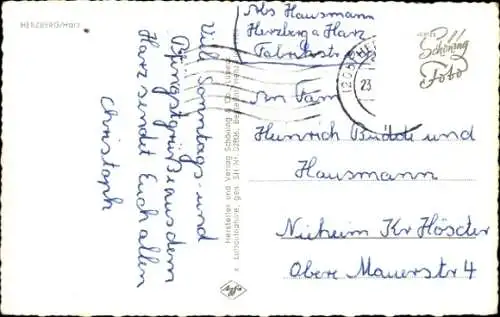 HERZBERG/Harz
Abs Hausmann
Herzberg a Harz
Fabrikstr
(20b) HE
23
Schöning
Foto
Viele Sonntags- und
Pfingstgrüße aus dem
Harz sendet Euch allen
Christoph
Hersteller und Verlag Schöning & Co., Lübeck
Agfa
An Fam
Heinrich Budde und
Hausmann
Nieheim Kr Höxter
Obere Mauerstr 4